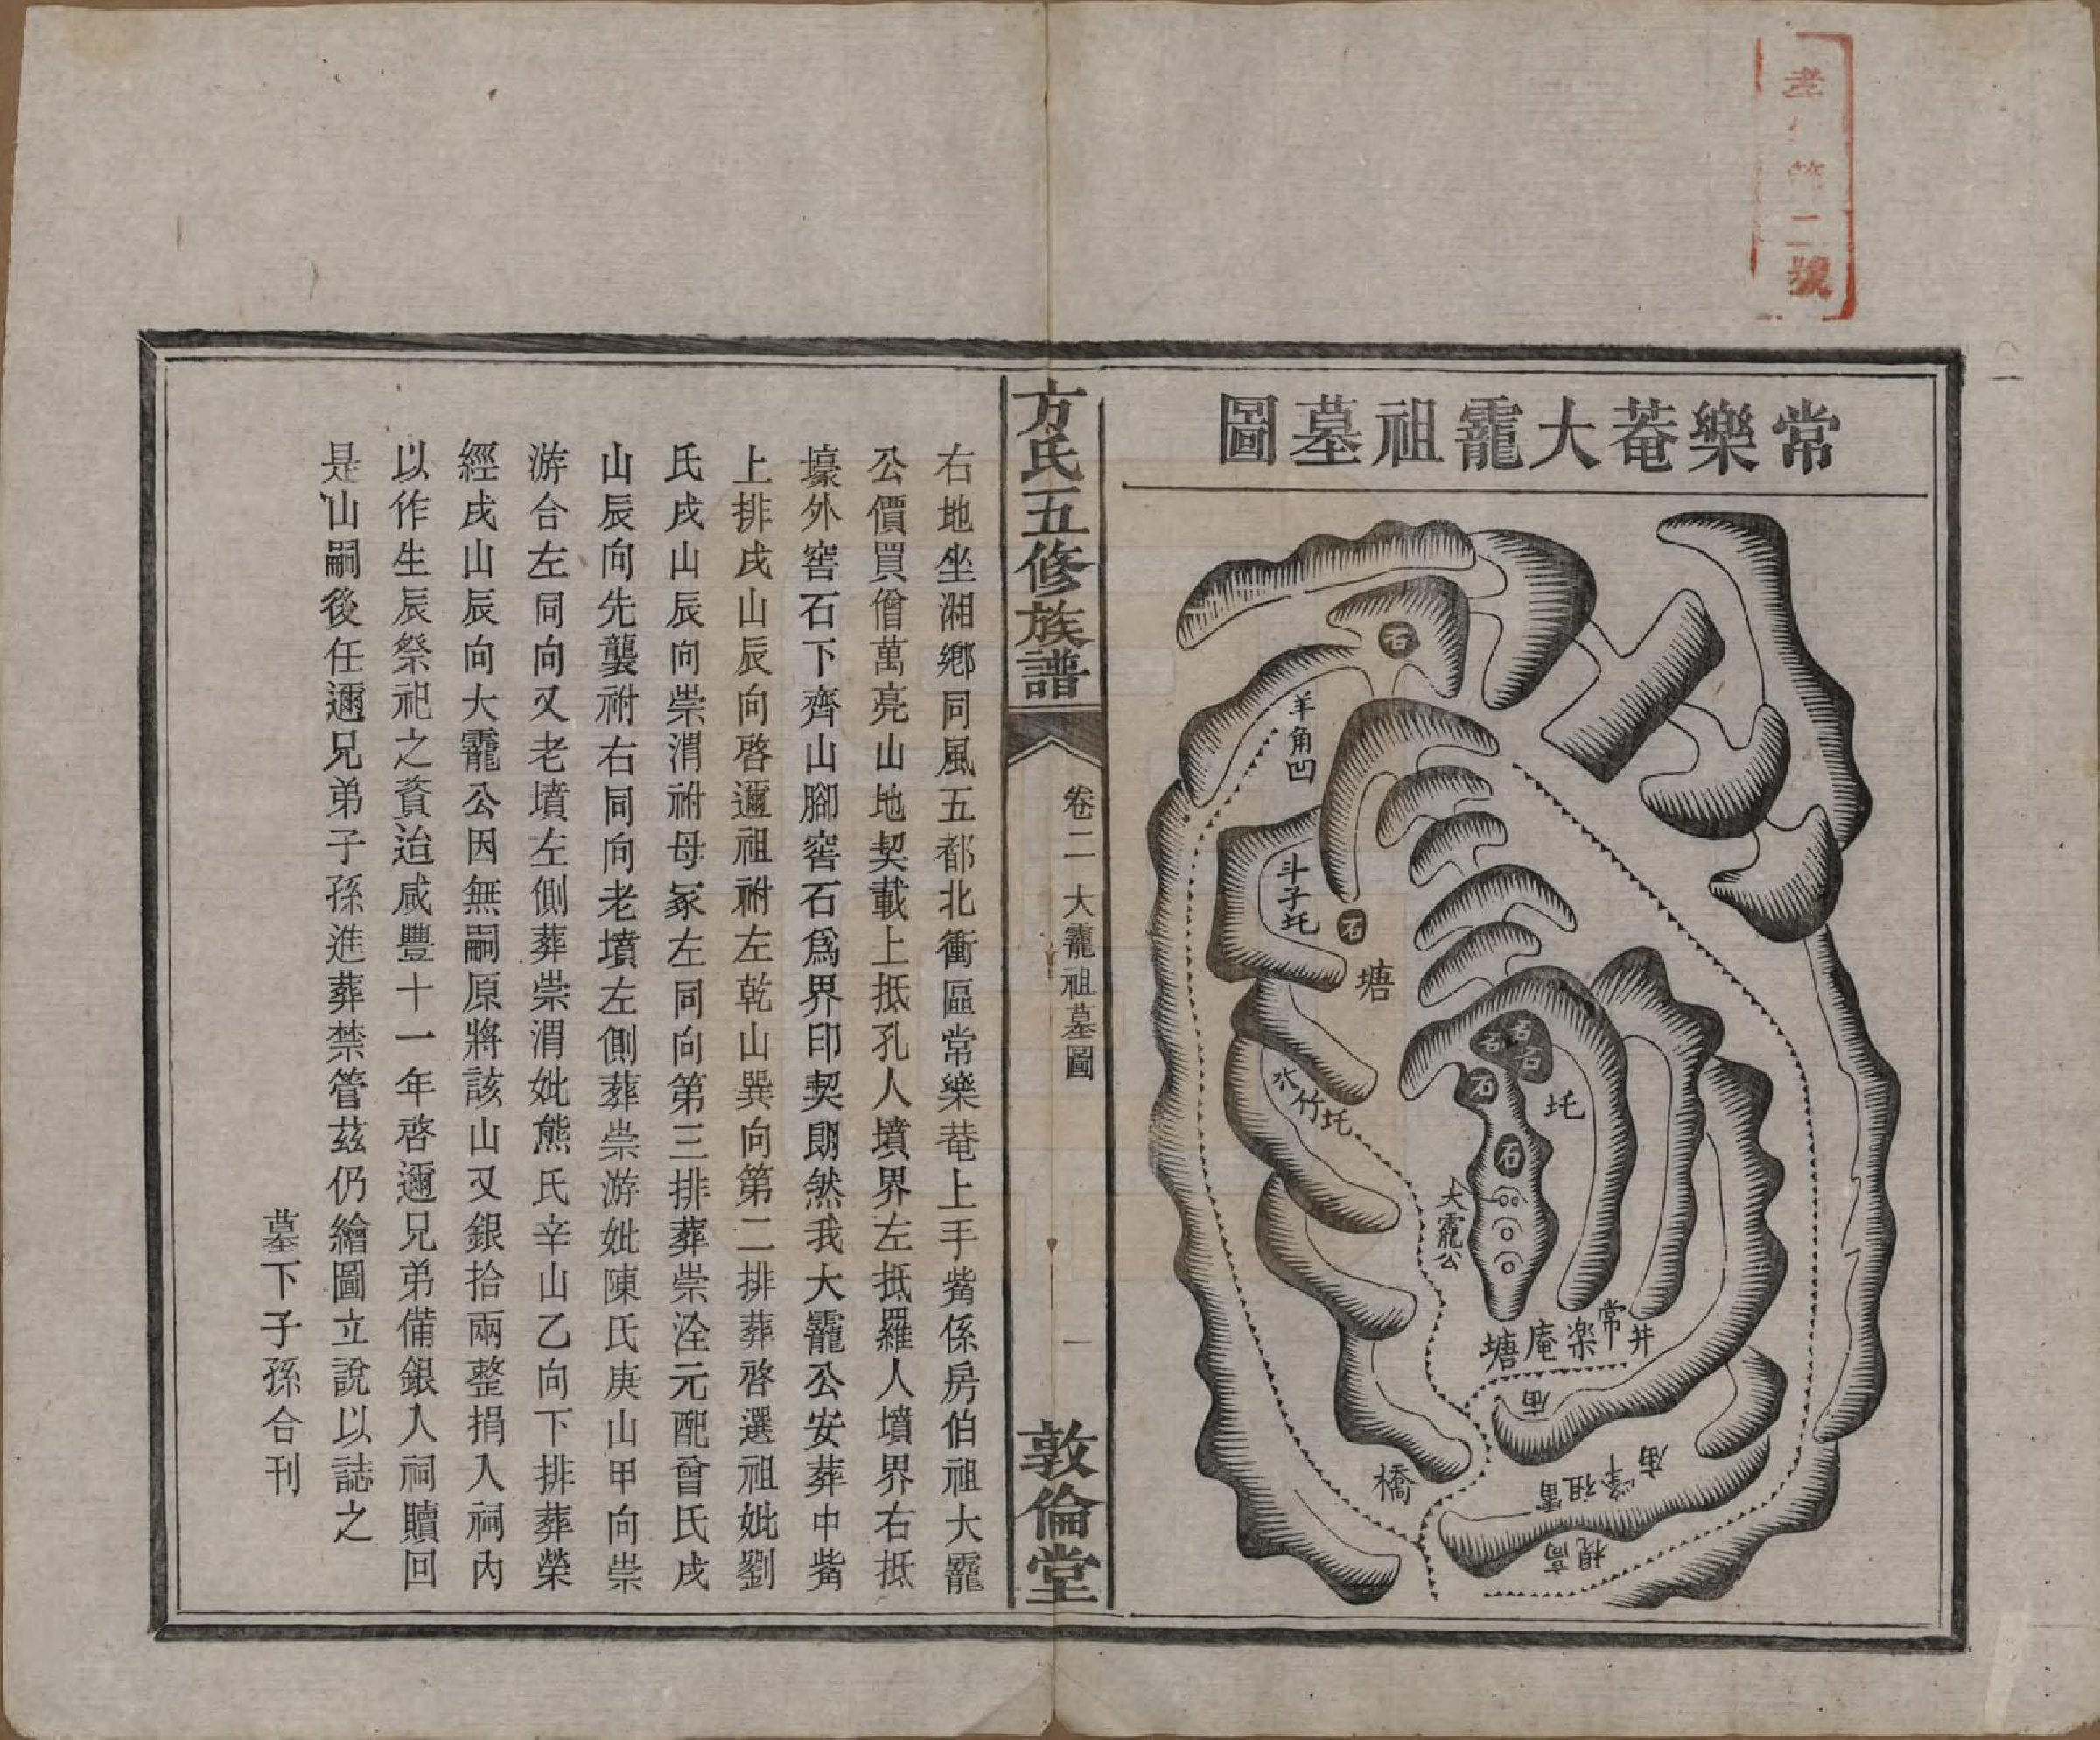 常樂菴大龗祖墓圖
石
羊角凹
斗子圫
石
塘
石石石
石
圫
水竹圫
石
大龗公
井
常楽庵塘
庙
橋
方氏五修族譜
卷二 大龗祖墓圖
一
敦倫堂
右地坐湘鄉同風五都北衝區常樂菴上手觜係房伯祖大龗
公價買僧萬亮山地契載上抵孔人墳界左抵羅人墳界右抵
壕外窖石下齊山腳窖石爲界印契朗然我大龗公安葬中觜
上排戌山辰向啓邇祖祔左乾山巽向第二排葬啓選祖妣劉
氏戌山辰向崇渭祔母冢左同向第三排葬崇淦元配曾氏戌
山辰向先襲祔右同向老墳左側葬崇游妣陳氏庚山甲向崇
游合左同向又老墳左側葬崇渭妣熊氏辛山乙向下排葬榮
經戌山辰向大龗公因無嗣原將該山又銀拾兩整捐入祠內
以作生辰祭祀之資迨咸豐十一年啓邇兄弟備銀入祠贖回
是山嗣後任邇兄弟子孫進葬禁管茲仍繪圖立說以誌之
墓下子孫合刊
二號